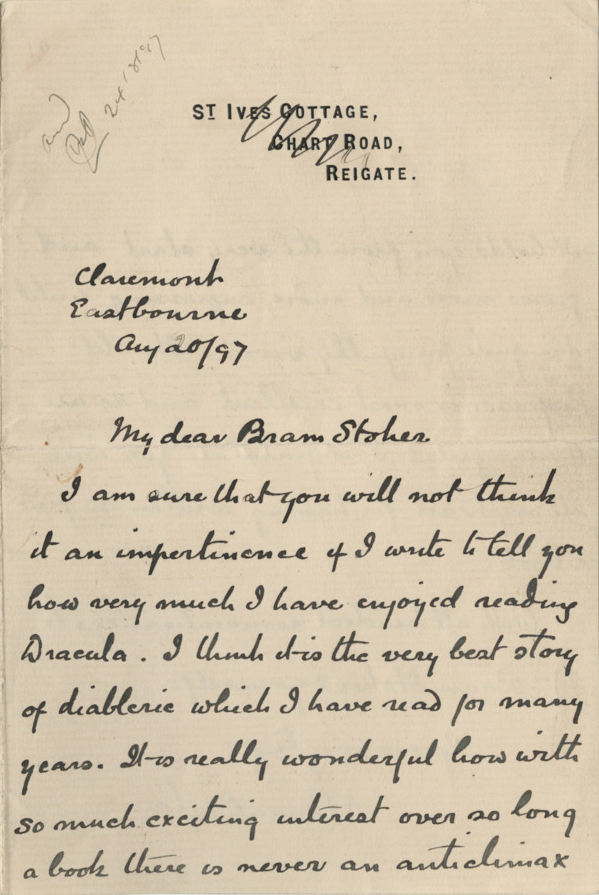 24/8/97
ST IVES COTTAGE,
CHART ROAD,
REIGATE.
Claremont
Eastbourne
Aug 20/97
My dear Bram Stoker
I am sure that you will not think
it an impertinence if I write to tell you
how very much I have enjoyed reading
Dracula. I think it is the very best story
of diablerie which I have read for many
years. It is really wonderful how with
so much exciting interest over so long
a book there is never an anticlimax